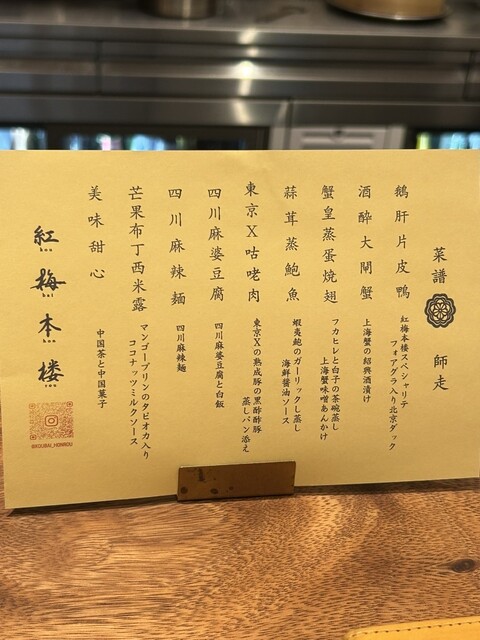 菜譜 師走
鵝肝片皮鴨
紅梅本樓スペシャリテ
フォアグラ入り北京ダック
酒酔大閘蟹
上海蟹の紹興酒漬け
蟹皇蒸蛋焼翅
フカヒレと白子の茶碗蒸し
上海蟹味噌あんかけ
蒜茸蒸鮑魚
蝦夷鮑のガーリックし蒸し
海鮮醤油ソース
東京X咕咾肉
東京Xの熟成豚の黒酢酢豚
蒸しパン添え
四川麻婆豆腐
四川麻婆豆腐と白飯
四川麻辣麺
四川麻辣麺
芒果布丁西米露
マンゴープリンのタピオカ入り
ココナッツミルクソース
美味甜心
中国茶と中国菓子
紅梅本樓
kou bai hon rou
@KOUBAI_HONROU